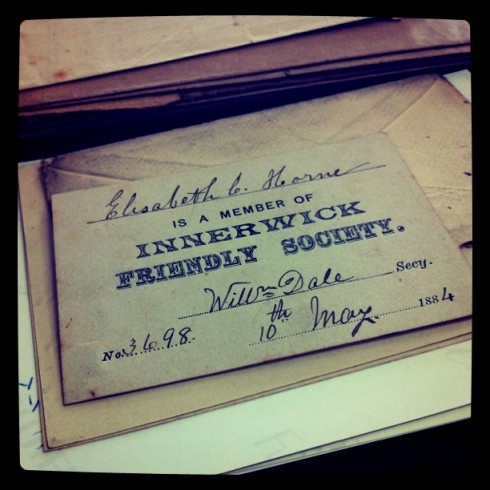 Elisabeth C. Horne
IS A MEMBER OF
INNERWICK
FRIENDLY SOCIETY.
Willm Dale Secy.
No. 3698. 10th May 1884